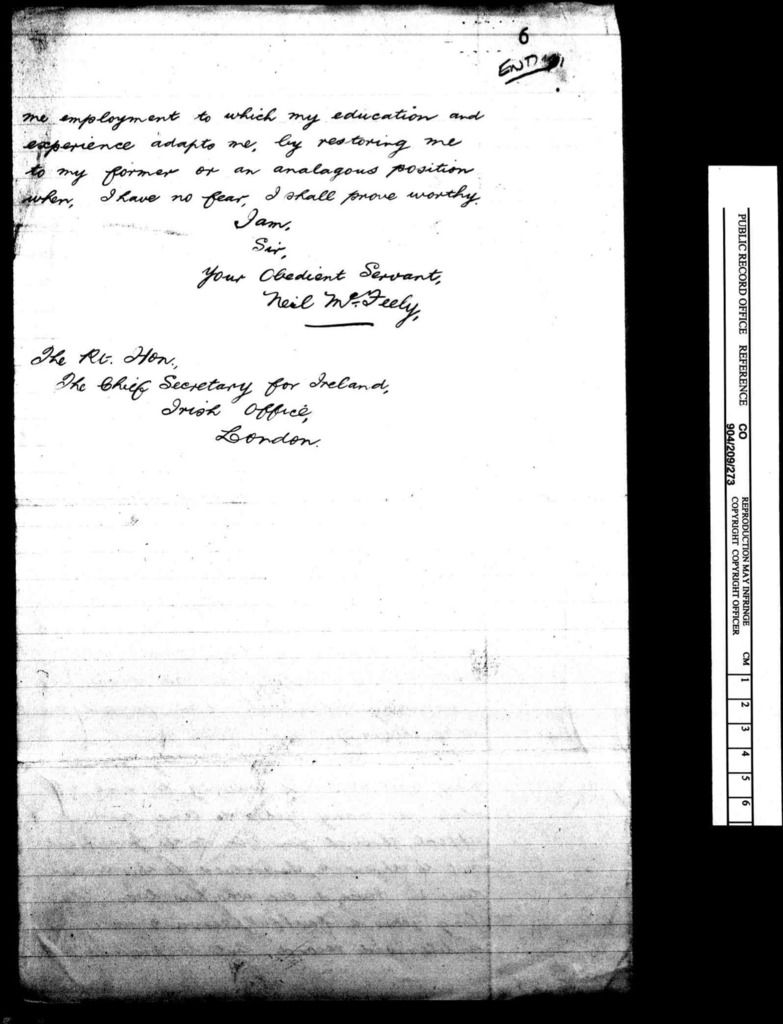 6
END
me employment to which my education and
experience adapts me, by restoring me
to my former or an analagous position
when, I have no fear, I shall prove worthy.
I am,
Sir,
Your Obedient Servant,
Neil McFeely,
The Rt. Hon.,
The Chief Secretary for Ireland,
Irish Office,
London.
PUBLIC RECORD OFFICE REFERENCE
CO
904/209/273
REPRODUCTION MAY INFRINGE
COPYRIGHT COPYRIGHT OFFICER
CM 1 2 3 4 5 6